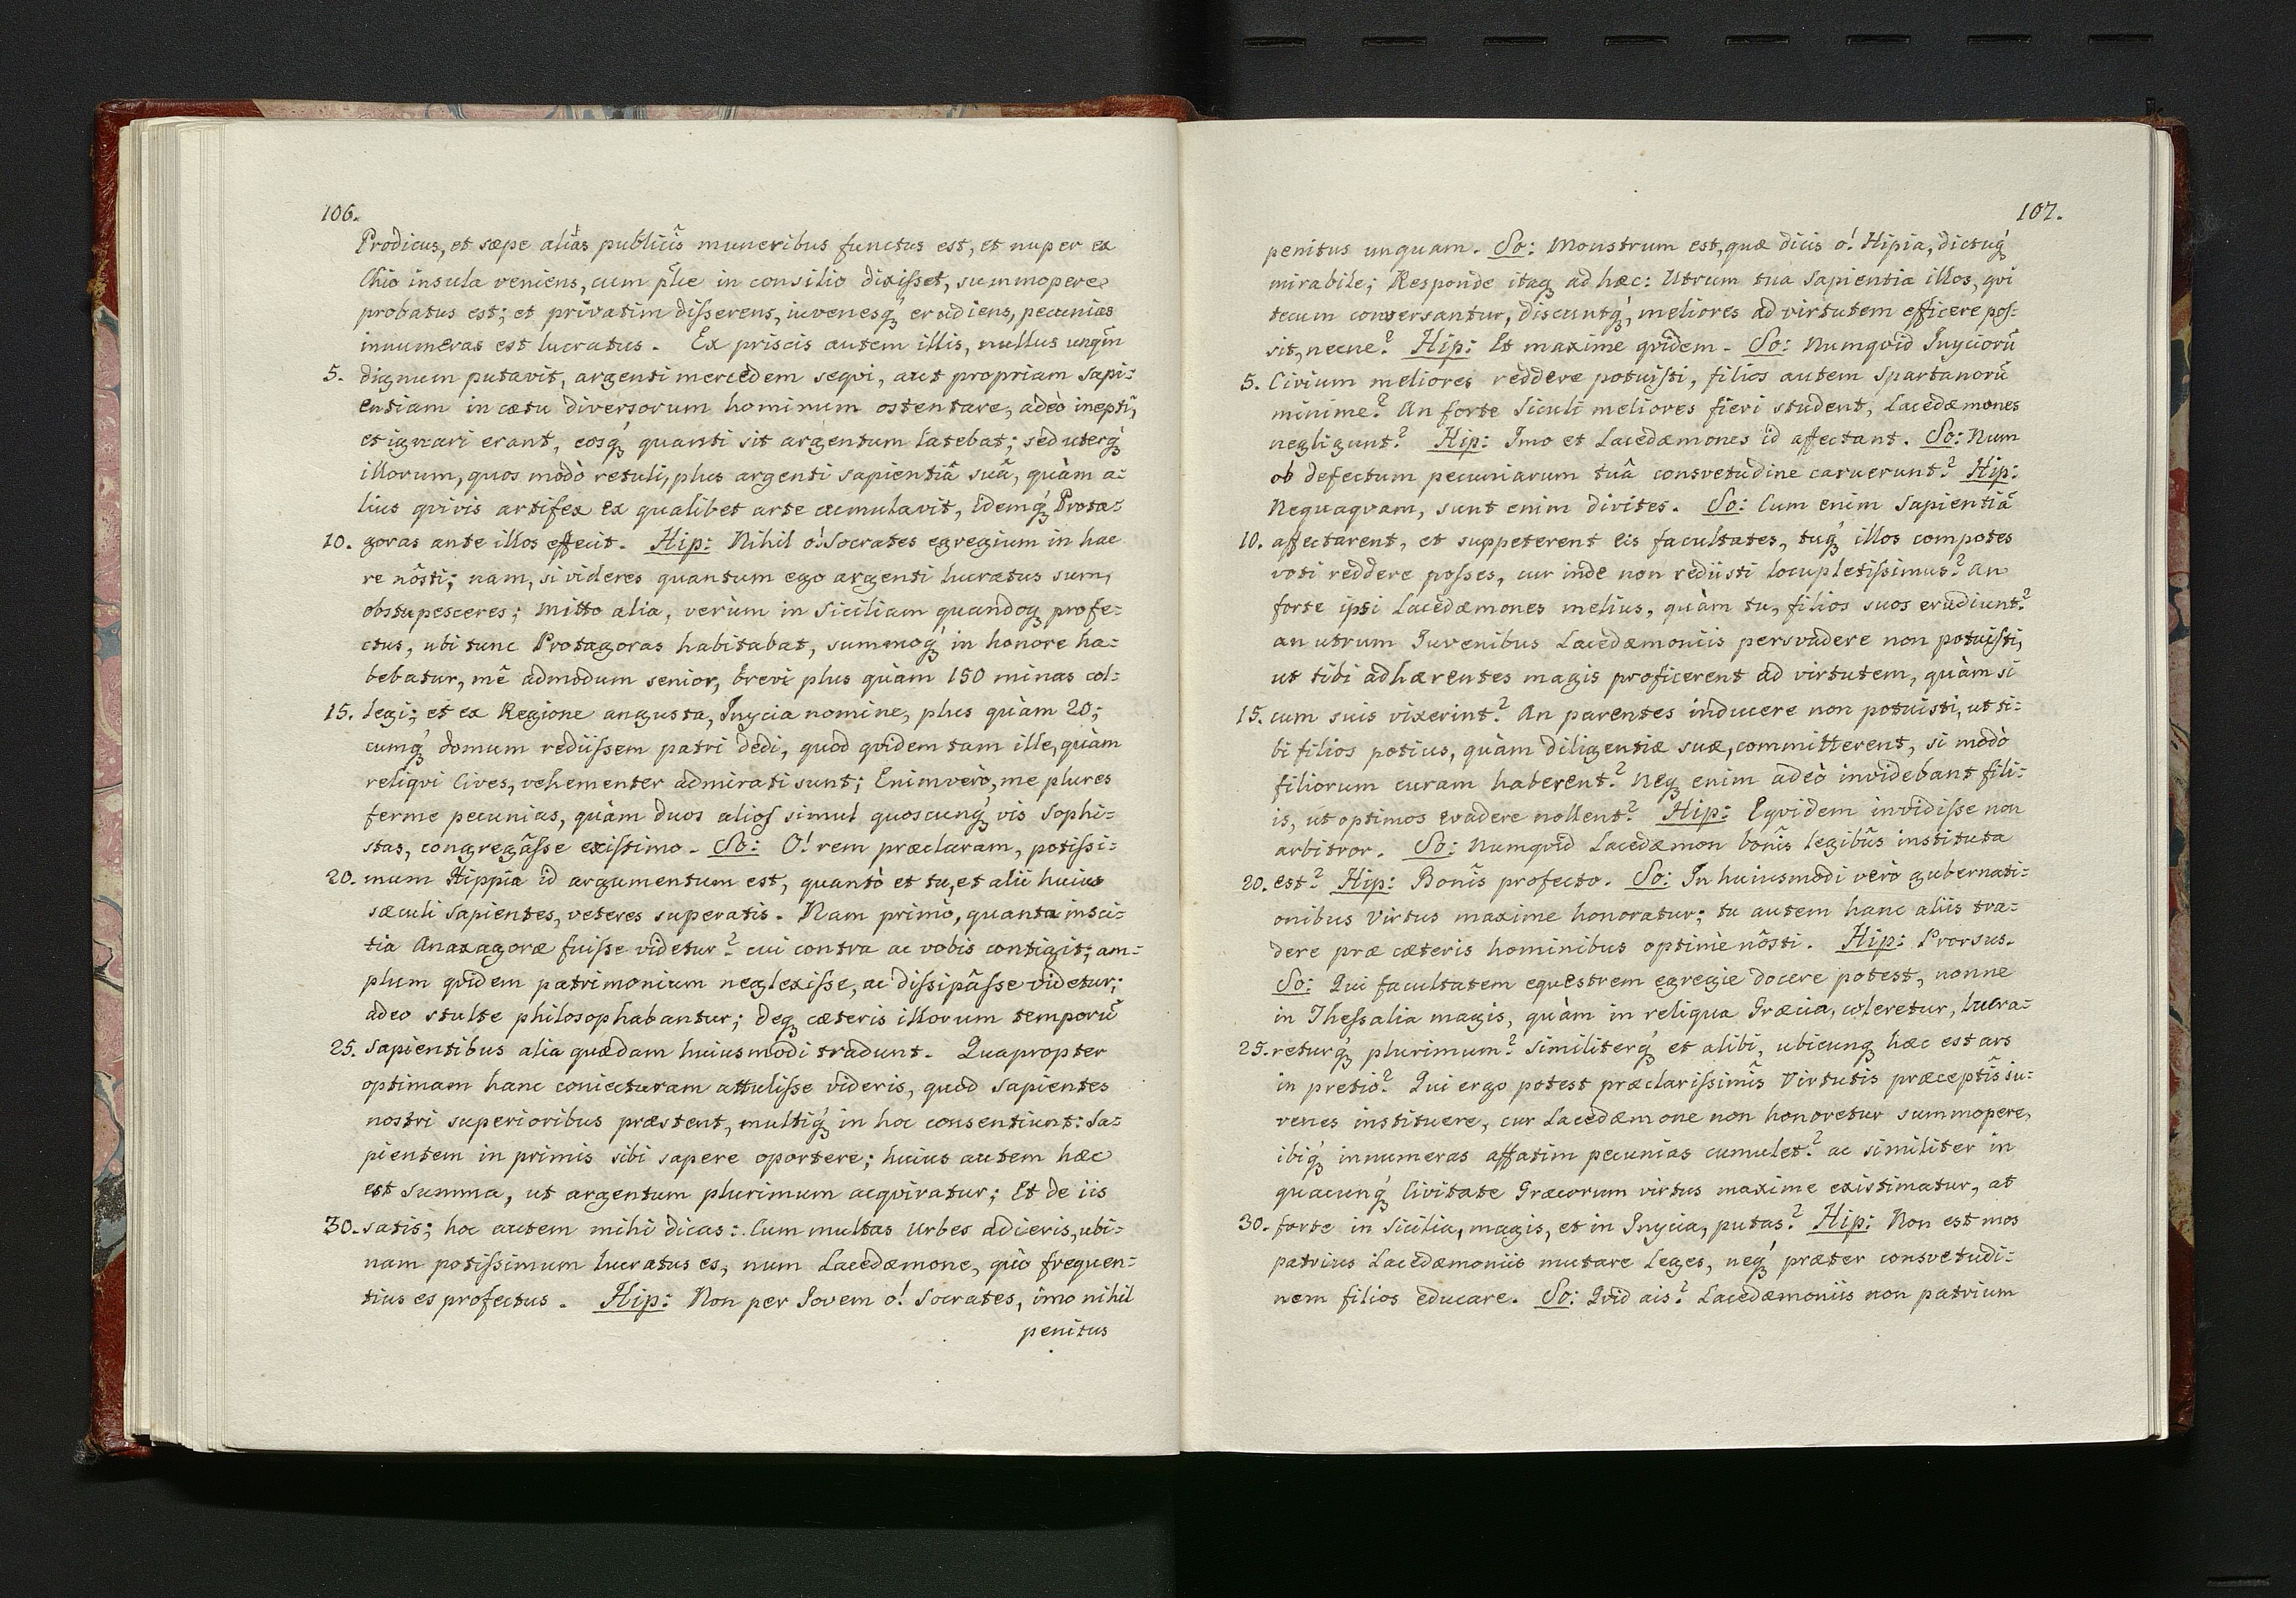 106.
Prodicus, et sæpe aliàs publicîs muneribus functus est, et nuper ex
Chio insula veniens, cum pl̃ce in consilio dixiſset, summopere
probatus est; et privatim diſserens, iuvenesq́ꝫ erudiens, pecunias
innumeras est lucratus. Ex priscis autem illis, nullus unqũm
5. dignum putavit, argenti mercedem seqvi, aut propriam Sapi=
entiam in cætu diversorum hominum ostentare, adeò ineptĩ,
et ignari erant, eosq́ꝫ quanti sit argentum latebat; sed uterq́ꝫ
illorum, quos modò retuli, plus argenti sapientiâ suâ, quàm a=
lius qvivis artifex ex qualibet arte acumulavit, idemq́ꝫ Prota=
10. goras ante illos effecit. Hip: Nihil o! Socrates egregium in hac
re nôsti; nam, si videres quantum ego argenti lucratus sum,
obstupesceres; Mitto alia, verùm in Siciliam quandoqꝫ profe=
ctus, ubi tunc Protagoras habitabat, summoq́ꝫ in honore ha=
bebatur, mê admodum senior, brevi plus quàm 150 minas col=
15. legi; et ex Regione angusta, Inycia nomine, plus quàm 20;
cumq́ꝫ domum rediiſsem patri dedi, quod qvidem tam ille, quàm
reliqvi Cives, vehementer admirati sunt; Enimverò, me plures
ferme pecunias, quàm duos alioſ simul quoscunq́ꝫ vis Sophi=
stas, congregâſse exiſtimo. So: O! rem præclaram, potiſsi=
20. mum Hippia id argumentum est, quantò et tu, et alii huius
sæculi Sapientes, veteres superatis. Nam primò, quanta insci=
tia Anaxagoræ fuiſse videtur? cui contra ac vobis contigit; am=
plum qvidem patrimonium neglexiſse, ac diſsipâſse videtur;
adeo stulte philosophabantur; Deqꝫ cæteris illorum temporũ
25. Sapientibus alia quædam huiusmodi tradunt. Quapropter
optimam hanc coniecturam attuliſse videris, quod Sapientes
nostri superioribus præstent, multiq́ꝫ in hoc consentiunt: Sa=
pientem in primis sibi sapere oportere; huius autem hæc
est Summa, ut argentum plurimum acqviratur; Et de iis
30. satis; hoc autem mihi dicas: Cum multas Urbes adieris, ubi=
nam potiſsimum lucratus es, num Lacedæmone, quò frequen=
tius es profectus. Hip: Non per Jovem o! Socrates, imo nihil
penitus
107.
penitus unquam. So: Monstrum est, quæ dicis o! Hipia, dictuq́ꝫ
mirabile; Responde itaqꝫ ad hæc: Utrum tua Sapientia illos, qvi
tecum conversantur, discuntq́ꝫ, meliores ad virtutem efficere poſ=
sit, necne? Hip: Et maxime qvidem. So: Numqvid Inyciorũ
5. Civium meliores reddere potuiſti, filios autem Spartanorũ
minime? An forte Siculi meliores fieri student, Lacedæmones
negligunt? Hip: Imo et Lacedæmones id affectant. So: Num
ob defectum pecuniarum tuâ consvetudine caruerunt? Hip:
Nequaqvam, sunt enim divites. So: Cum enim Sapientiã
10. affectarent, et suppeterent eis facultates, tuq́ꝫ illos compotes
voti reddere poſses, cur inde non rediisti locupletiſsimus? An
forte ipsi Lacedæmones melius, quàm tu, filios suos erudiunt?
an utrum Juvenibus Lacedæmoniis persvadere non potuiſti,
ut tibi adhærentes magis proficerent ad virtutem, quàm si
15. cum suis vixerint? An parentes inducere non potuisti, ut ti=
bi filios potius, quàm diligentiæ suæ, committerent, si modò
filiorum curam haberent? Neqꝫ enim adeò invidebant fili=
is, ut optimos evadere nollent? Hip: Eqvidem invidiſse non
arbitror. So: Numqvid Lacedæmon bonîs legibûs instituta
20. est? Hip: Bonîs profecto. So: In huiusmodi verò gubernati=
onibus Virtus maxime honoratur; tu autem hanc aliis tra=
dere præ cæteris hominibus optimè nôsti. Hip: Prorsus.
So: Qui facultatem equestrem egregie docere potest, nonne
in Theſsalia magis, quàm in reliqua Græcia, coleretur, lucra=
25. returq́ꝫ plurimum? similiterq́ꝫ et alibi, ubicunqꝫ hæc est ars
in pretio? Qui ergo potest præclariſsimîs Virtutis præceptîs iu=
venes instituere, cur Lacedæmone non honoretur summopere,
ibiq́ꝫ innumeras affatim pecunias cumulet? ac similiter in
quacunq́ꝫ Civitate Græcorum virtus maxime existimatur, at
30. forte in Sicilia, magis, et in Inycia, putas? Hip: Non est mos
patrius Lacedæmoniis mutare Leges, neq́ꝫ præter consvetudi=
nem filios educare. So: Qvid ais? Lacedæmoniis non patrium